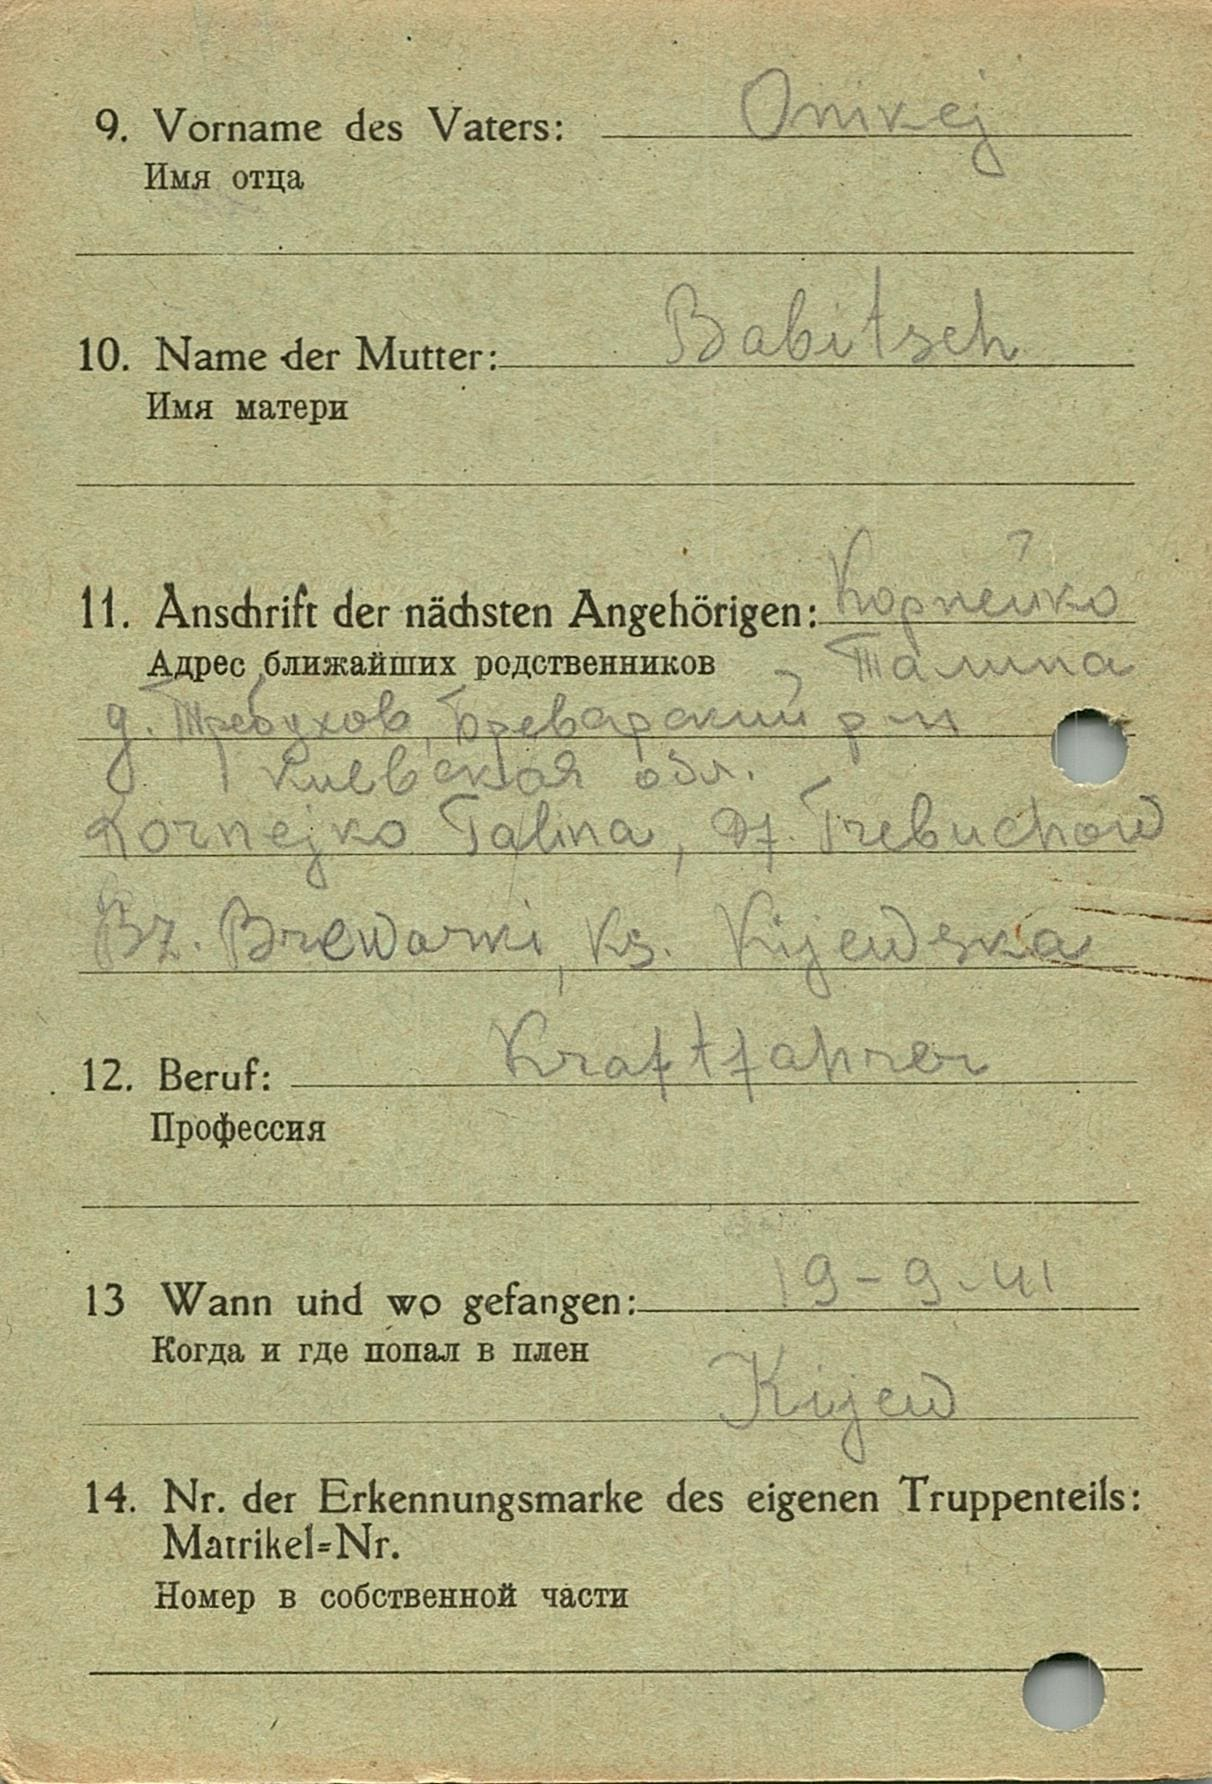 9. Vorname des Vaters: Onikej
Имя отца
10. Name der Mutter: Babitsch
Имя матери
11. Anschrift der nächsten Angehörigen: Корнейко
Адрес ближайших родственников Талина
д. Требухов, Бреварский р-н
Киевская обл.
Kornejko Talina, Df. Trebuchow
Bz. Brewarki, Ks. Kijewska
12. Beruf: Kraftfahrer
Профессия
13 Wann und wo gefangen: 19-9-41
Когда и где попал в плен
Kijew
14. Nr. der Erkennungsmarke des eigenen Truppenteils:
Matrikel=Nr.
Номер в собственной части